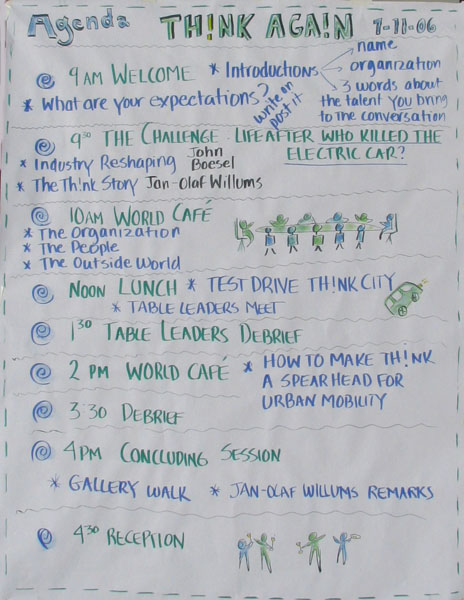 Agenda TH!NK AGA!N 7-11-06
9AM WELCOME * Introductions
name
organization
3 words about
the talent you bring
to the conversation
* What are your expectations?
write on
post it
9³⁰ THE CHALLENGE: LIFE AFTER WHO KILLED THE
ELECTRIC CAR?
* Industry Reshaping John
Boesel
* The Th!nk Story Jan-Olaf Willums
10AM WORLD CAFÉ
* The Organization
* The People
* The Outside World
NOON LUNCH * TEST DRIVE TH!NK CITY
* TABLE LEADERS MEET
1³⁰ TABLE LEADERS DEBRIEF
2 PM WORLD CAFÉ * HOW TO MAKE TH!NK
A SPEARHEAD FOR
URBAN MOBILITY
3:30 DEBRIEF
4PM CONCLUDING SESSION
* GALLERY WALK * JAN-OLAF WILLUMS REMARKS
4³⁰ RECEPTION